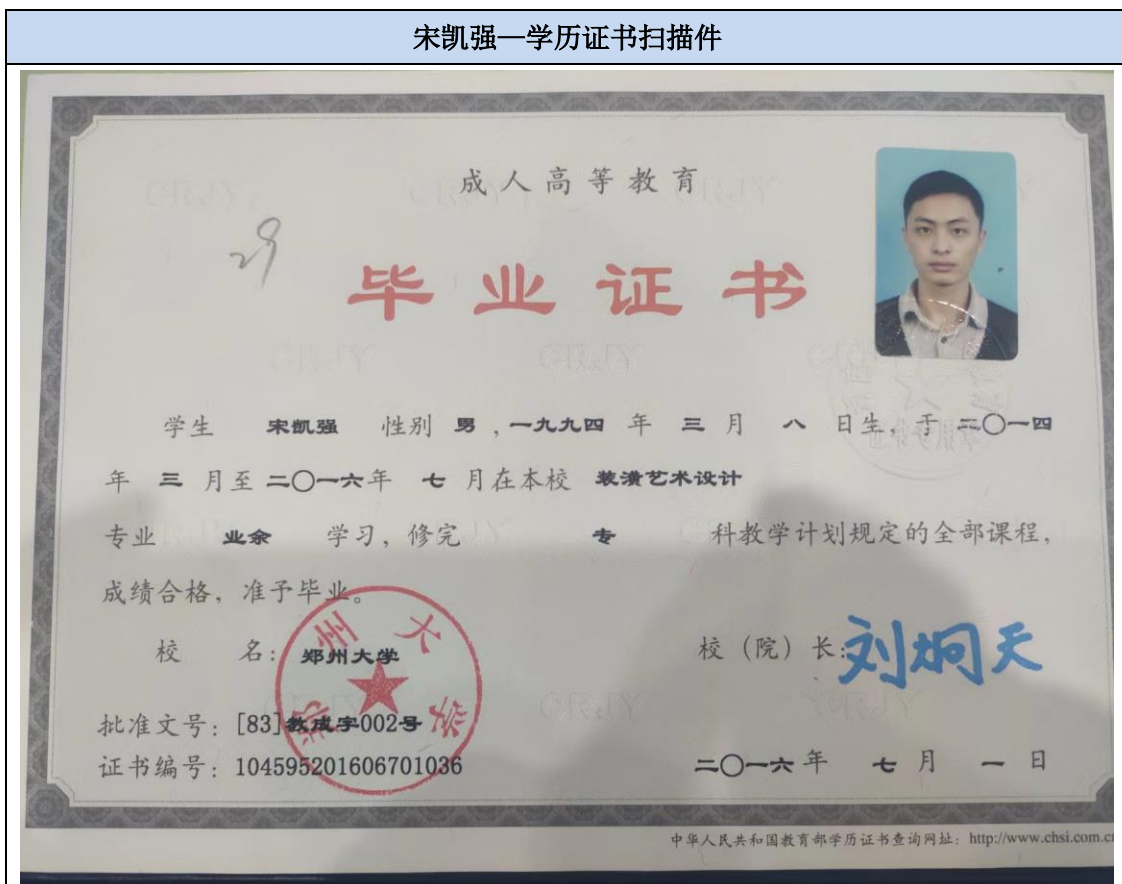 宋凯强—学历证书扫描件
成人高等教育
29
毕业证书
学生 宋凯强 性别 男，一九九四 年 三 月 八 日生，于 二〇一四
年 三 月至 二〇一六年 七 月在本校 装潢艺术设计
专业 业余 学习，修完 专 科教学计划规定的全部课程，
成绩合格，准予毕业。
校 名：郑州大学
郑州大学
校（院）长：刘炯天
批准文号：[83]教成字002号
证书编号：104595201606701036
二〇一六年 七 月 一 日
中华人民共和国教育部学历证书查询网址：http://www.chsi.com.c